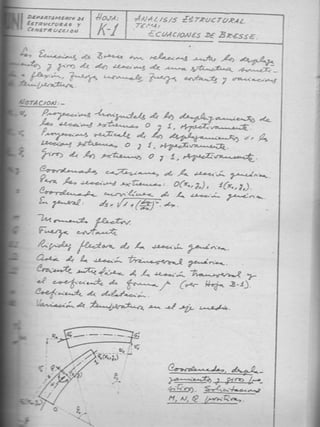 DEPARTAMENTO DE
ESTRUCTURAS Y
CONSTRUCCIÓN
HOJA:
K-1
ANALISIS ESTRUCTURAL
TEMA:
ECUACIONES DE BRESSE.
Las Ecuaciones de Bresse son relaciones entre los desplaza-
mientos y giros de dos secciones de una estructura
a flexión, fuerza normal, fuerza cortante y variaciones
temperatura.
NOTACION:-
Proyecciones horizontales de los desplazamientos de
las secciones extremas 0 y 1, respectivamente.
Proyecciones verticales de los desplazamientos de las
secciones extremas 0 y 1, respectivamente.
Giros de los extremos 0 y 1, respectivamente.
Coordenadas cartesianas, de la sección genérica.
Para las secciones extremas: O(x₀,y₀), 1(x₁,y₁).
Coordenada curvilínea de la sección genérica.
En general: ds = √1+(dy/dx)² · dx.
Momento flector.
Fuerza cortante
Rigidez flectora de la sección genérica.
Area de la sección transversal genérica.
Cociente entre el área de la sección transversal y
el coeficiente de forma μ (ver Hoja B-1)
Coeficiente de dilatación.
Variación de temperatura en el eje medio.
Coordenadas, despla-
zamientos y giros
Solicitaciones
M, N, Q positivas.